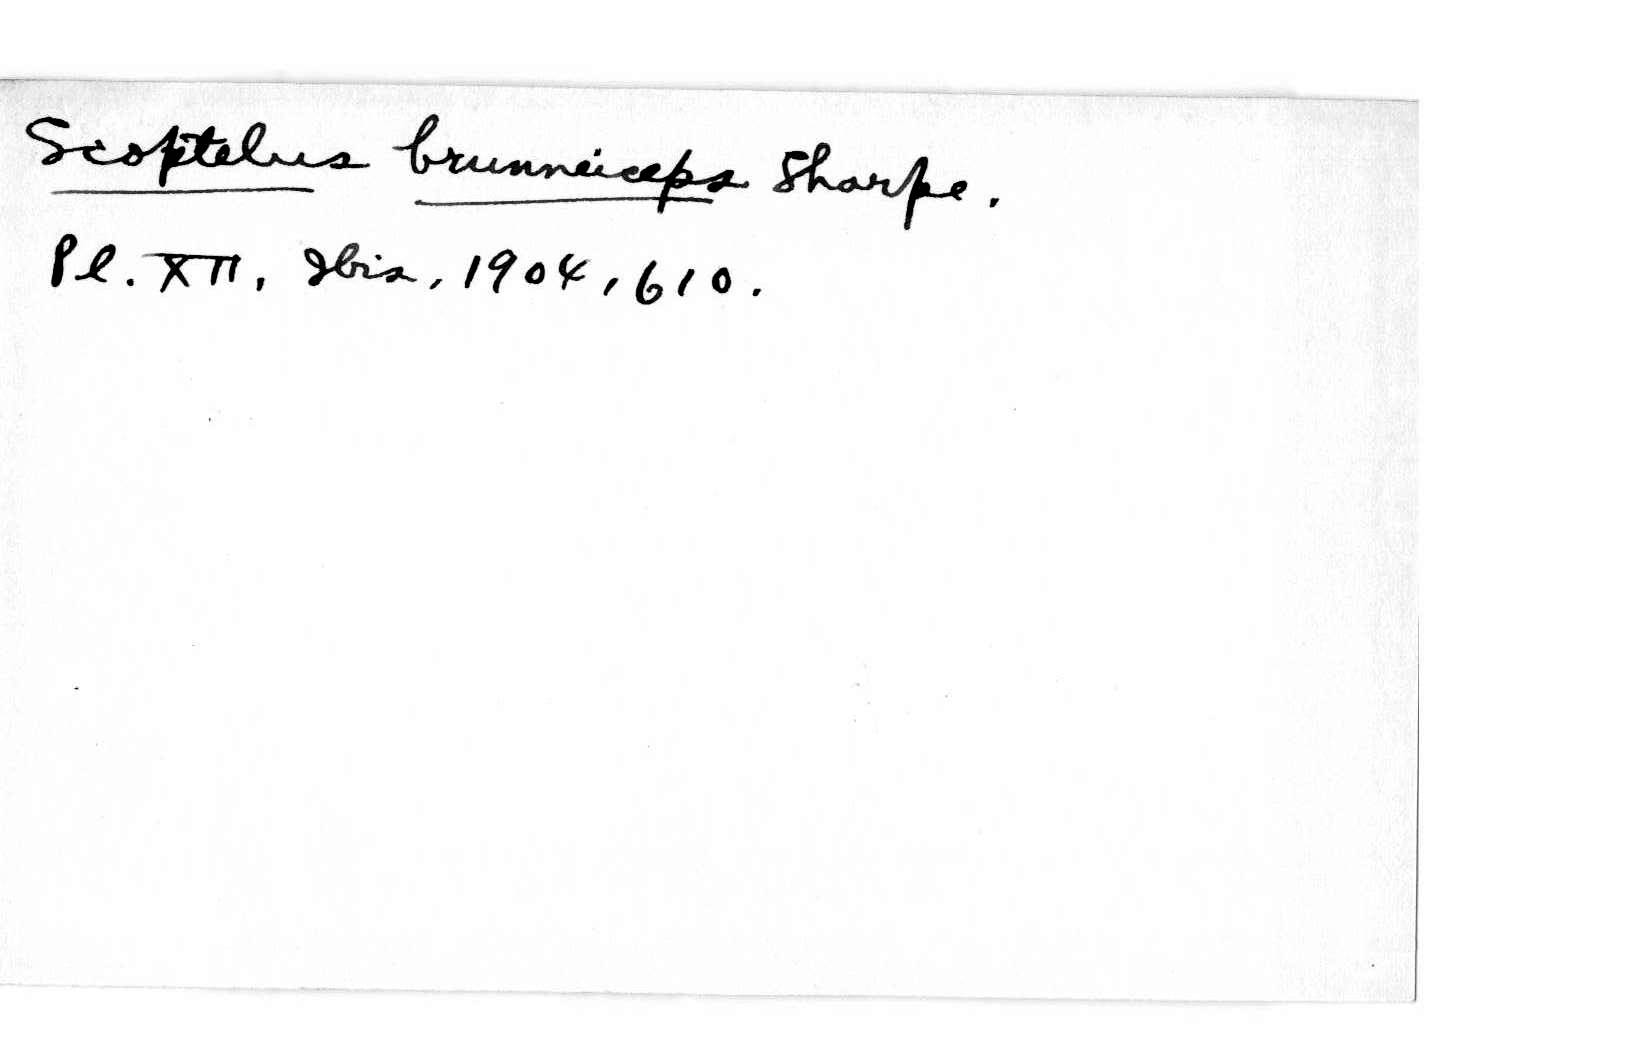 Scoptelus brunneiceps Sharpe.
Pl. XII, Ibis, 1904, 610.